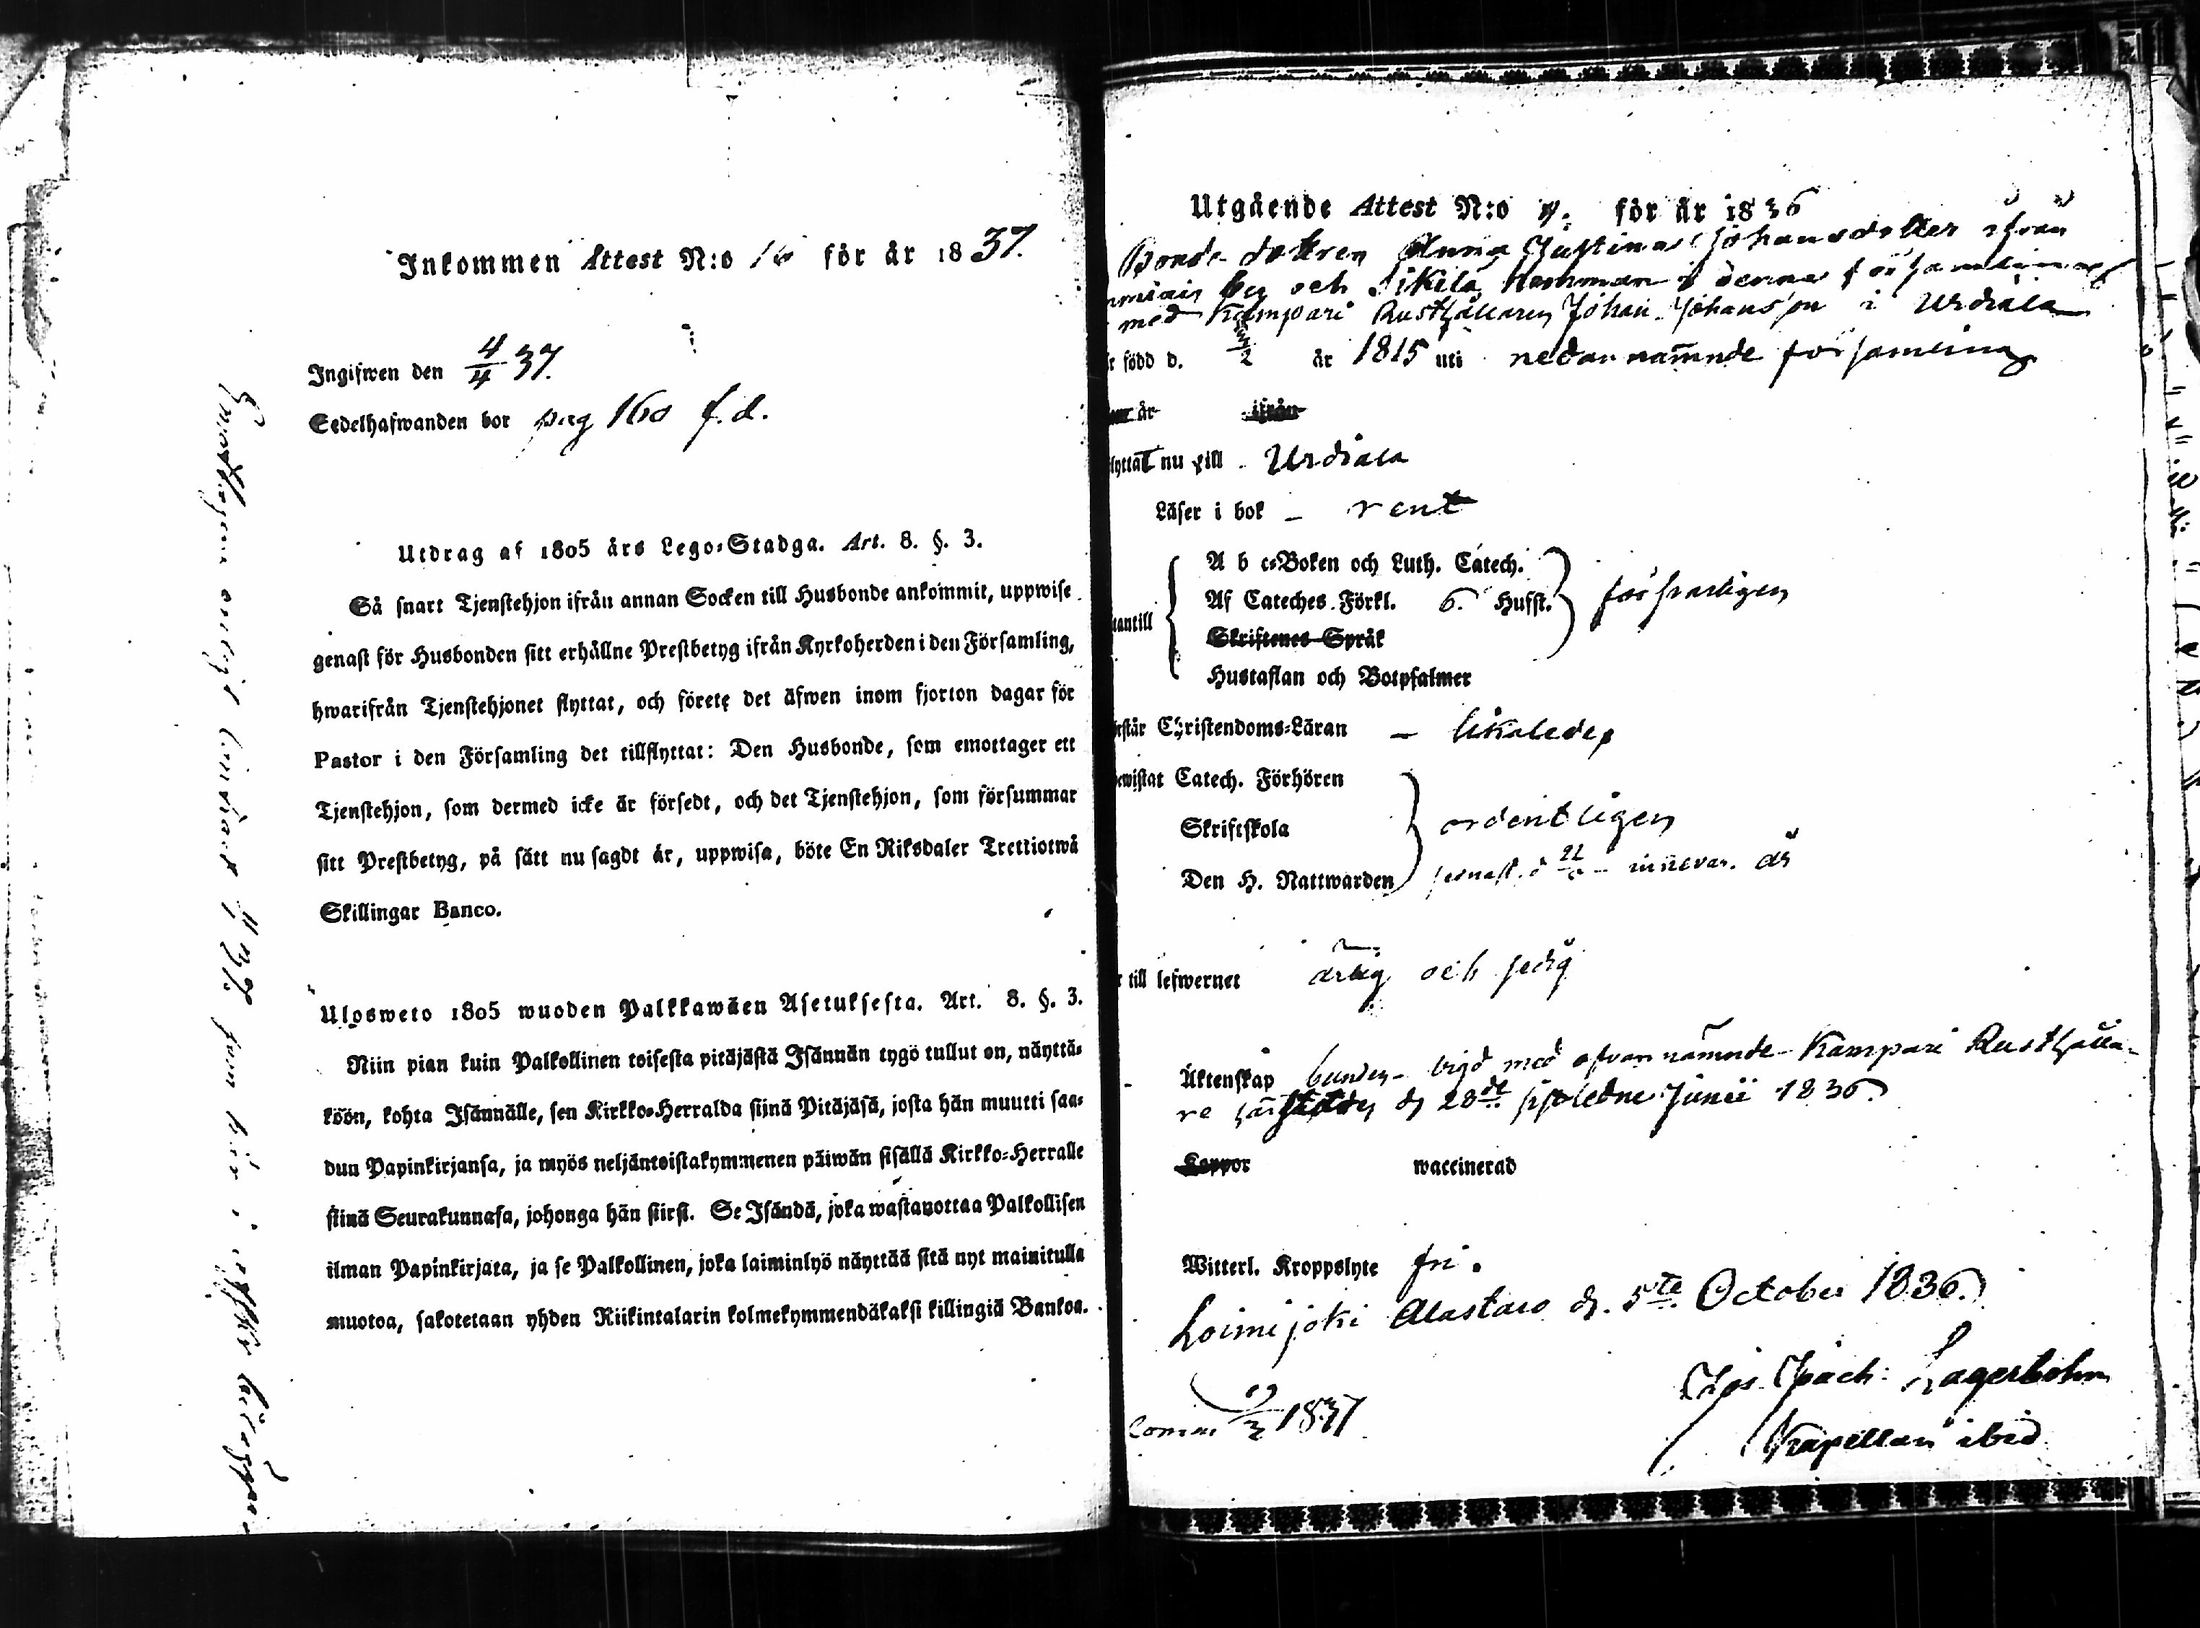 Inkommen Attest N:o 16 för år 1837.
Ingifwen den 4/4 37.
Sedelhafwanden bor pag 160 f. d.
Utdrag af 1805 års Lego-Stadga. Art. 8. §. 3.
Så snart Tjenstehjon ifrån annan Socken till Husbonde ankommit, uppwise
genast för Husbonden sitt erhållne Prestbetyg ifrån Kyrkoherden i den Församling,
hwarifrån Tjenstehjonet flyttat, och förete det äfwen inom fjorton dagar för
Pastor i den Församling det tillflyttat: Den Husbonde, som emottager ett
Tjenstehjon, som dermed icke är försedt, och det Tjenstehjon, som försummar
sitt Prestbetyg, på sätt nu sagdt är, uppwisa, böte En Riksdaler Trettiotwå
Skillingar Banco.
Ulosweto 1805 wuoden Palkkawäen Asetuksesta. Art. 8. §. 3.
Niin pian kuin Palkollinen toisesta pitäjästä Isännän tygö tullut on, näyttä-
köön, kohta Isännälle, sen Kirkko-Herralda siinä Pitäjäsä, josta hän muutti saa-
dun Papinkirjansa, ja myös neljäntoistakymmenen päiwän sisällä Kirkko-Herralle
siinä Seurakunnasa, johonga hän siirst. Se Isändä, joka wastanottaa Palkollisen
ilman Papinkirjata, ja se Palkollinen, joka laiminlyö näyttää sitä nyt mainitulla
muotoa, sakotetaan yhden Riikintalarin kolmekymmendäkaksi killingiä Bankoa.
Utgående Attest N:o för år 1836
Bonde dottren Anna Justina Johansdotter ifrån
by och Sikilä Hemman i denna församling
med Kampari Rusthållaren Johan Johansson i Urdiala
född d. år 1815 uti nedannämnde församling
år ifrån
lyttat nu till Urdiala
Läser i bok - rent
tantill
A b c-Boken och Luth. Catech.
Af Cateches. Förkl. 6. Husst. försvarligen
Skriftenes Språk
Hustaflan och Botpsalmer
rstår Christendoms-Läran - likaledes
ewistat Catech. Förhören
Skriftskola ordentligen
Den H. Nattwarden senast d. innevar. år
till lefwernet ärlig och sedig
Äktenskap bunden - vigd med ofvannämnde Kampari Rusthålla-
re d. 28de sistledne Junii 1836.
Koppor waccinerad
Witterl. Kroppslyte fri.
Loimijoki Alastaro d. 5te October 1836.
Jos. Joach. Lagerbohm
Kapellan ibid.
1837